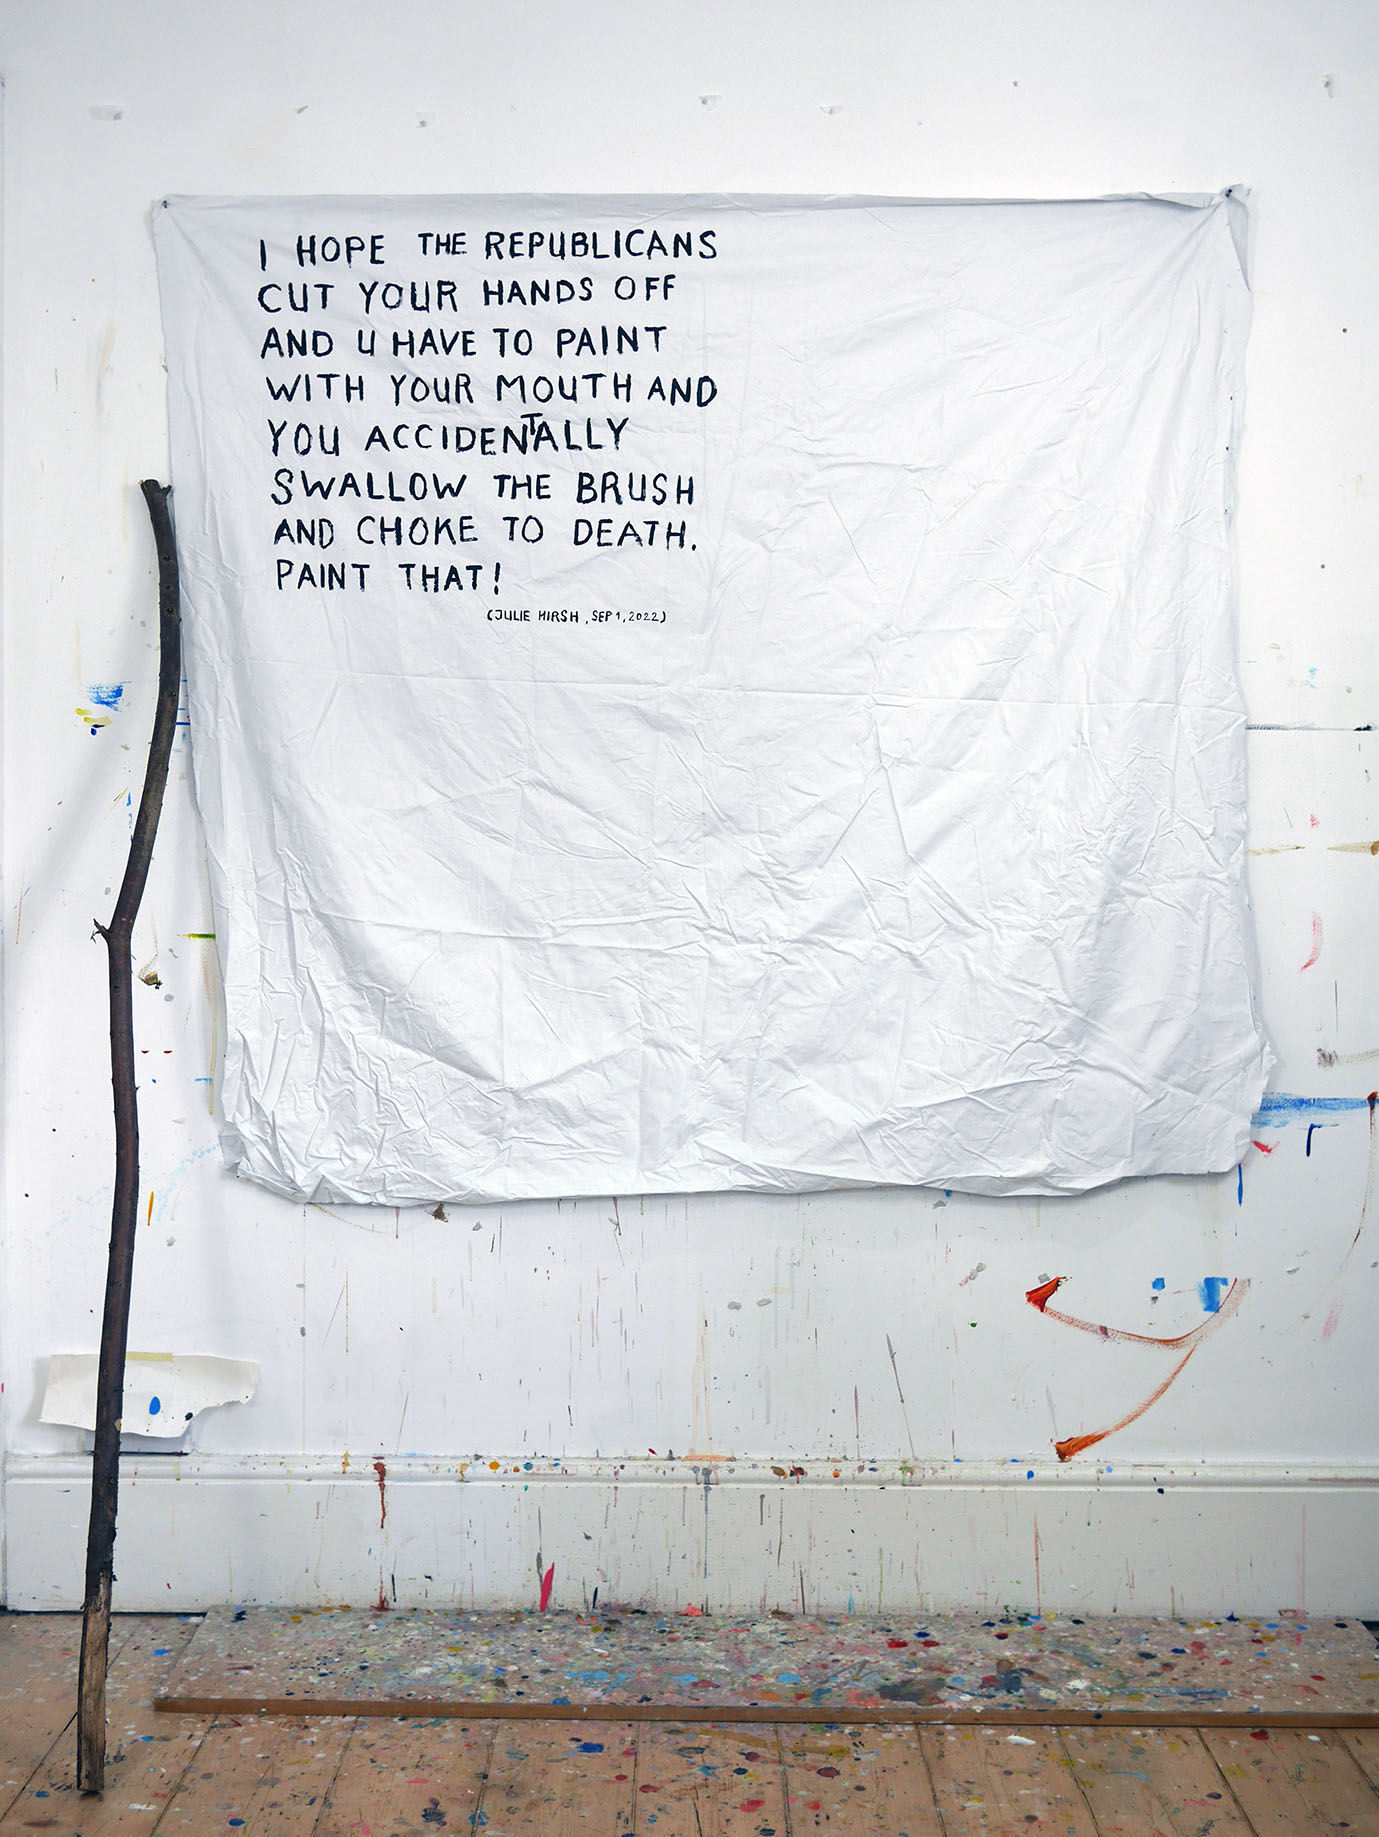 I HOPE THE REPUBLICANS
CUT YOUR HANDS OFF
AND U HAVE TO PAINT
WITH YOUR MOUTH AND
YOU ACCIDENTALLY
SWALLOW THE BRUSH
AND CHOKE TO DEATH.
PAINT THAT!
(JULIE HIRSH, SEP 1, 2022)